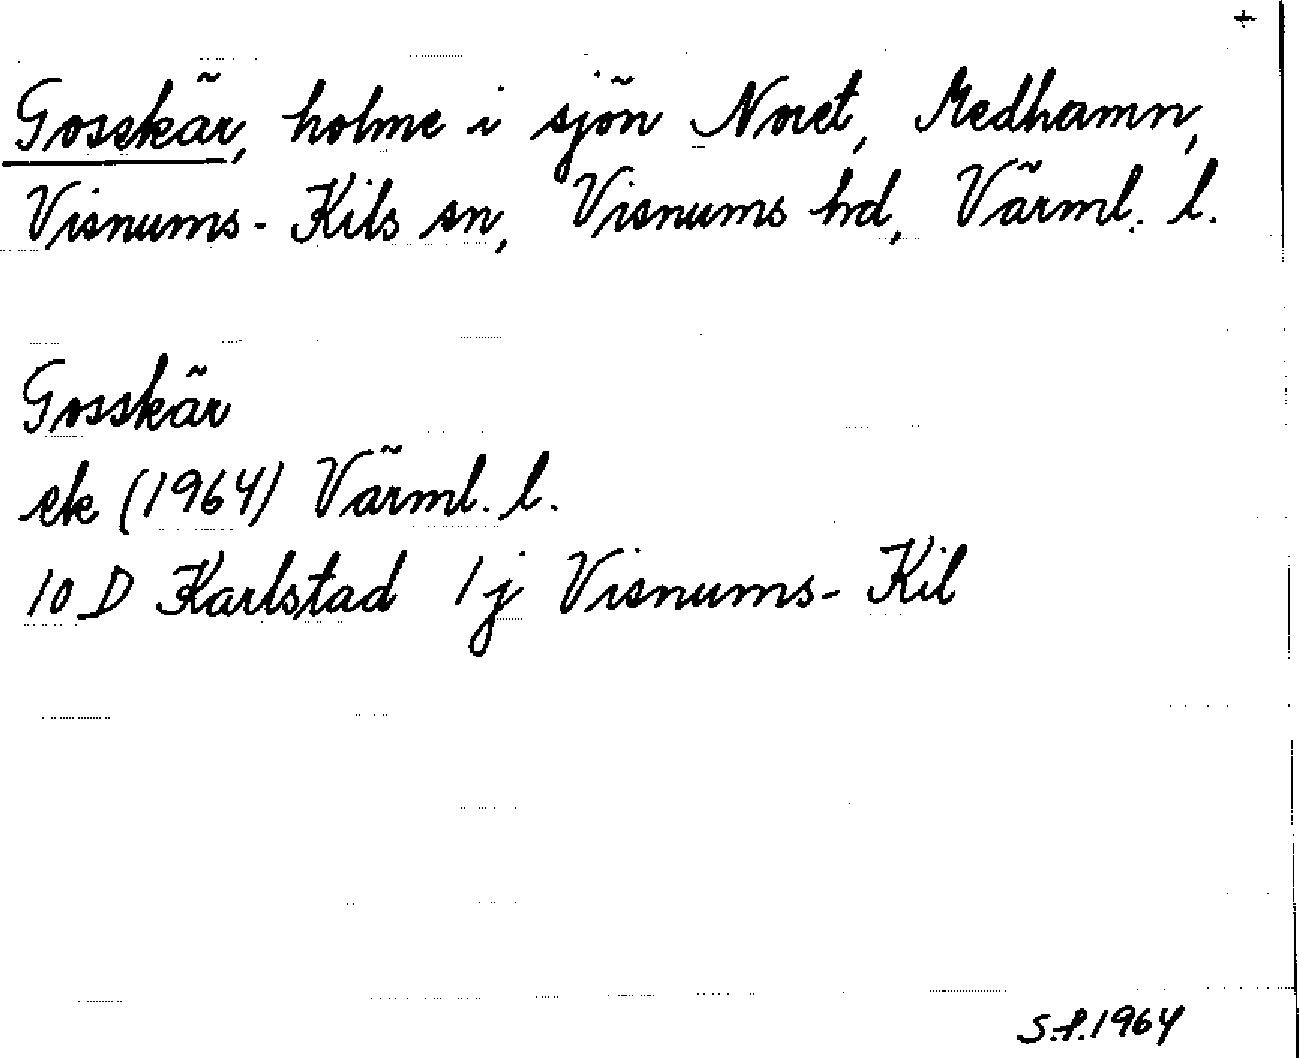 +
Gosskär, holme i sjön Noret, Medhamn,
Visnums-Kils sn, Visnums hd, Värml. l.
Gosskär
ek (1964) Värml. l.
10 D Karlstad 1j Visnums-Kil
S.f. 1964